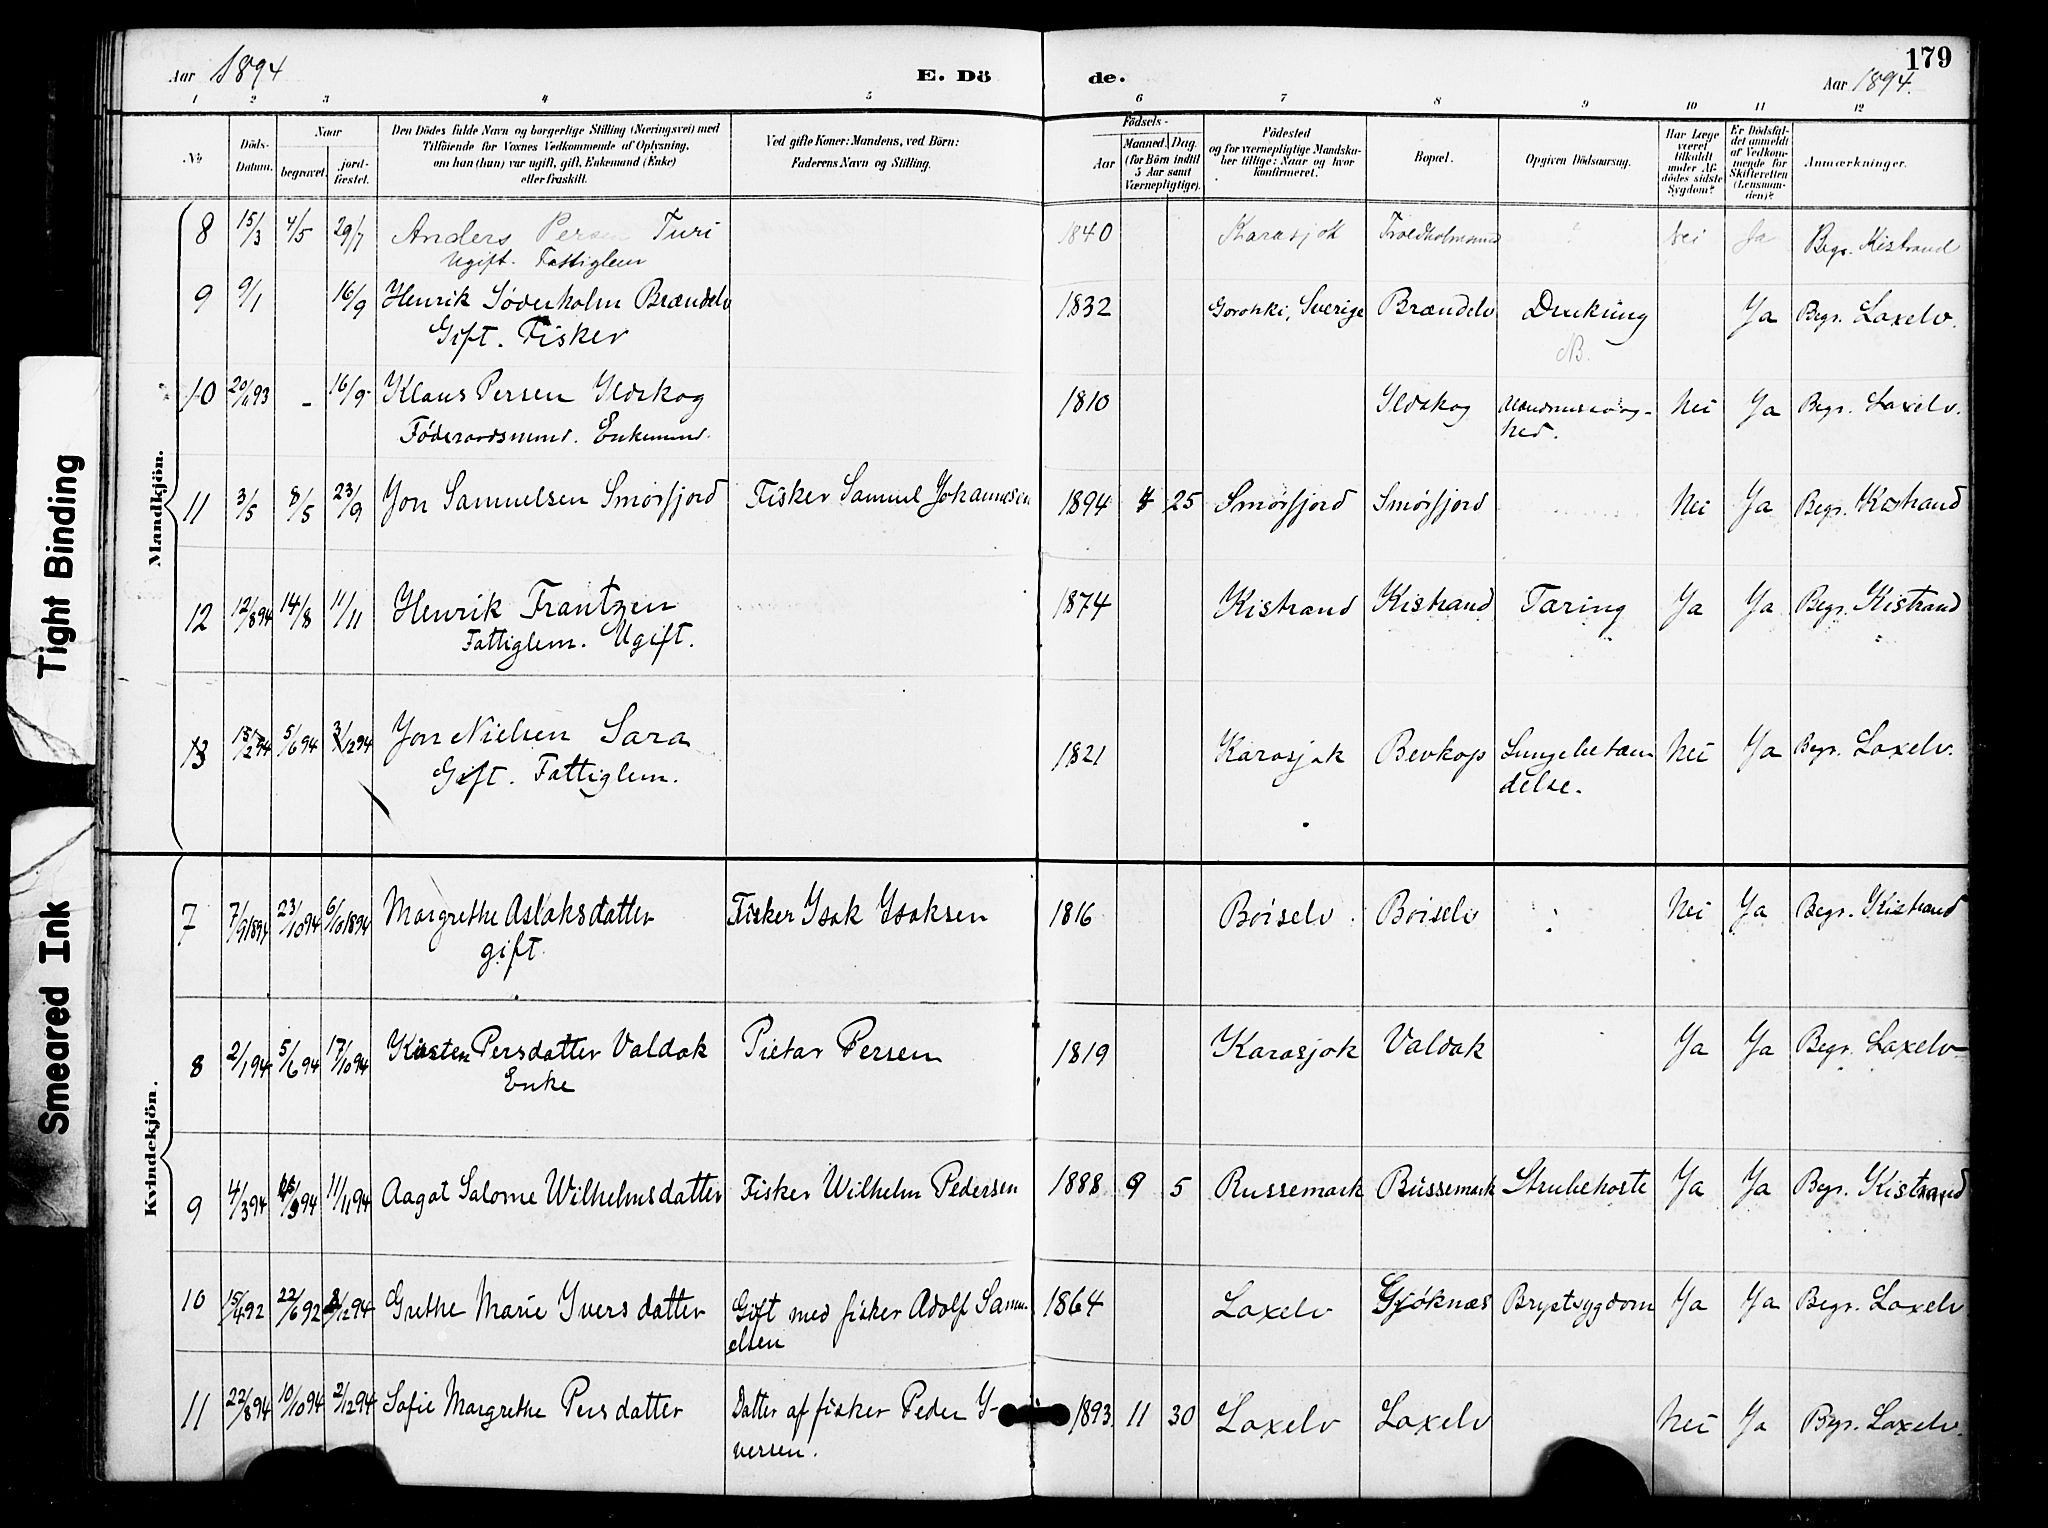 179
Aar 1894
E. Dö
de.
Aar 1894.
1 2 3 4 5 6 7 8 9 10 11 12
No
Döds-Datum.
Naar
begravet.
jord-fæstet.
Den Dödes fulde Navn og borgerlige Stilling (Næringsvei) med
Tilföiende for Voxnes Vedkommende af Oplysning,
om han (hun) var ugift, gift, Enkemand (Enke)
eller fraskilt.
Ved gifte Koner: Mandens, ved Börn:
Faderens Navn og Stilling.
Födsels-
Aar
Maaned. Dag.
(for Börn indtil
5 Aar samt
Værnepligtige).
Födested
og for værnepligtige Mandska-
ber tillige: Naar og hvor
konfirmeret.
Bopæl.
Opgiven Dödsaarsag.
Har Læge
været
tilkaldt
under Af-
dödes sidste
Sygdom?
Er Dödsfal-
det anmeldt
af Vedkom-
mende for
Skifteretten
(Lensman-
den)?
Anmærkninger.
Mandkjön.
8 15/3 4/5 29/7 Anders Persen Turi 1840 Karasjok Troldholmsund ? Nei Ja Begr. Kistrand
Ugift. Fattiglem
9 9/1 16/9 Henrik Söderholm Brændelv 1832 Sverige Brændelv Drukning Ja Begr. Laxelv.
Gift. Fisker NB.
10 20/11 93 - 16/9 Klaus Persen Ildskog 1810 Ildskog Alderdomssvag- Nei Ja Begr. Laxelv.
Föderaadsmand. Enkemand. hed.
11 3/5 8/5 23/9 Jon Samuelsen Smörfjord Fisker Samuel Johannesen 1894 4 25 Smörfjord Smörfjord Nei Ja Begr. Kistrand
12 12/8 94 14/8 11/11 Henrik Frantzen 1874 Kistrand Kistrand Tæring Ja Ja Begr. Kistrand
Fattiglem. Ugift.
13 13/2 94 5/6 94 3/12 94 Jon Nielsen Sara 1821 Karasjok Bevkop Lungebetæn Nei Ja Begr. Laxelv.
Gift. Fattiglem. delse.
Kvindekjön.
7 7/9 1894 23/10 94 6/10 1894 Margrethe Aslaksdatter Fisker Isak Isaksen 1816 Börselv Börselv ? Nei Ja Begr. Kistrand
gift.
8 2/1 94 5/6 94 17/10 94 Kirsten Persdatter Valdak Pietar Persen 1819 Karasjok Valdak Ja Ja Begr. Laxelv
Enke
9 4/3 94 94 11/11 94 Aagot Salome Wilhelmsdatter Fisker Wilhelm Pedersen 1888 9 5 Russemark Russemark Strubehoste Ja Ja Begr. Kistrand
10 15/4 92 22/6 92 2/12 94 Grethe Marie Iversdatter Gift med fisker Adolf Samu- 1864 Laxelv Gjöknæs Brystsygdom Ja Ja Begr. Laxelv
elsen
11 22/8 94 10/10 94 2/12 94 Sofie Margrethe Persdatter Datter af fisker Peder I- 1893. 11 30 Laxelv Laxelv Nei Ja Begr. Laxelv.
versen.
Tight Binding
Smeared Ink